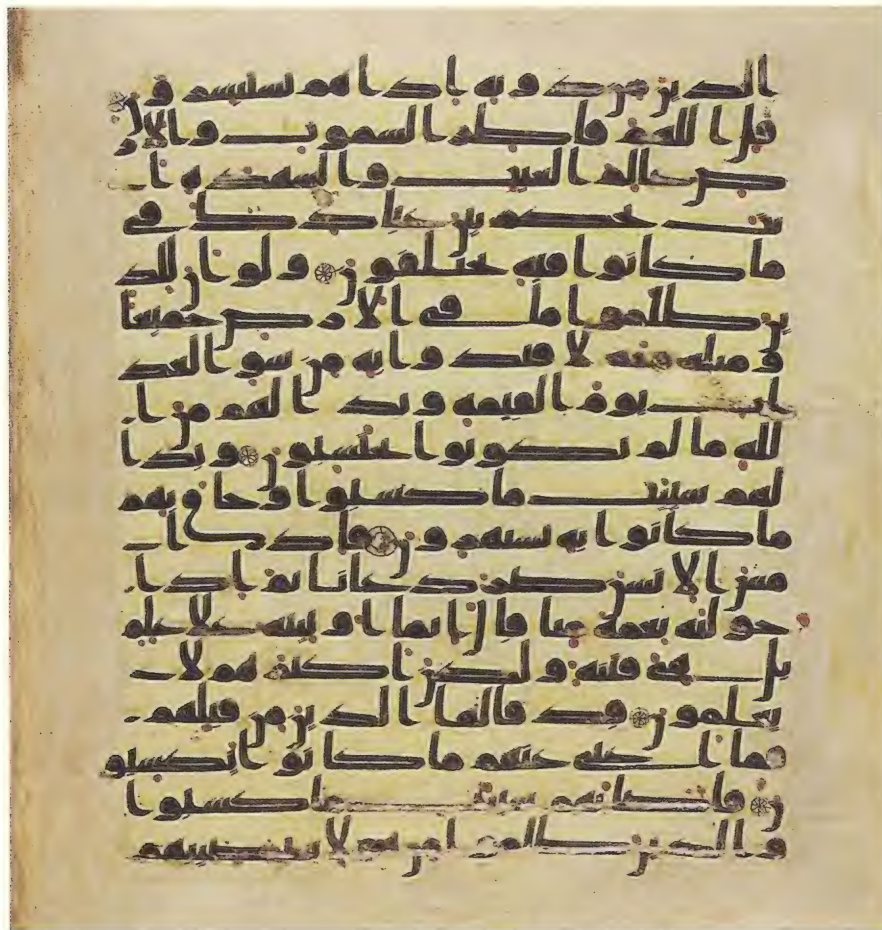 الذين من دونه اذا هم يستبشرون
قل اللهم فاطر السموت والار
ض علم الغيب والشهدة ا
نت تحكم بين عبادك في
ما كانوا فيه يختلفون ولو ان للذ
ين ظلموا ما في الارض جميعا
ومثله معه لافتدوا به من سو العذ
اب يوم القيمة وبدا لهم من ا
لله ما لم يكونوا يحتسبون وبدا
لهم سيت ما كسبوا وحاق بهم
ما كانوا به يستهزون فاذا
مس الانسن ضر دعانا ثم اذا
خولنه نعمة منا قال انما اوتيته على علم
بل هي فتنة ولكن اكثرهم لا
يعلمون قد قالها الذين من قبلهم
فما اغنى عنهم ما كانوا يكسبو
ن فاصابهم سيت ما كسبوا
والذين ظلموا من هولا سيصيبهم